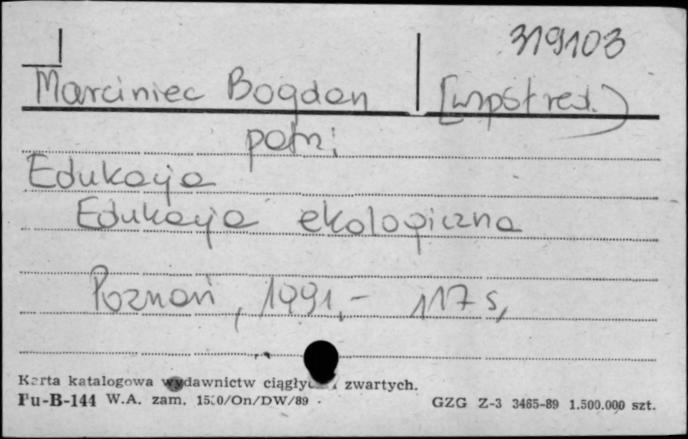 319103
Marciniec Bogdan [współred.)
patrz
Edukacja
Edukacja ekologiczna
Poznań, 1991,- 117 s,
Karta katalogowa wydawnictw zwartych.
Pu-B-144 W.A. zam. GZG Z-3 3465-89 1.500.000 szt.